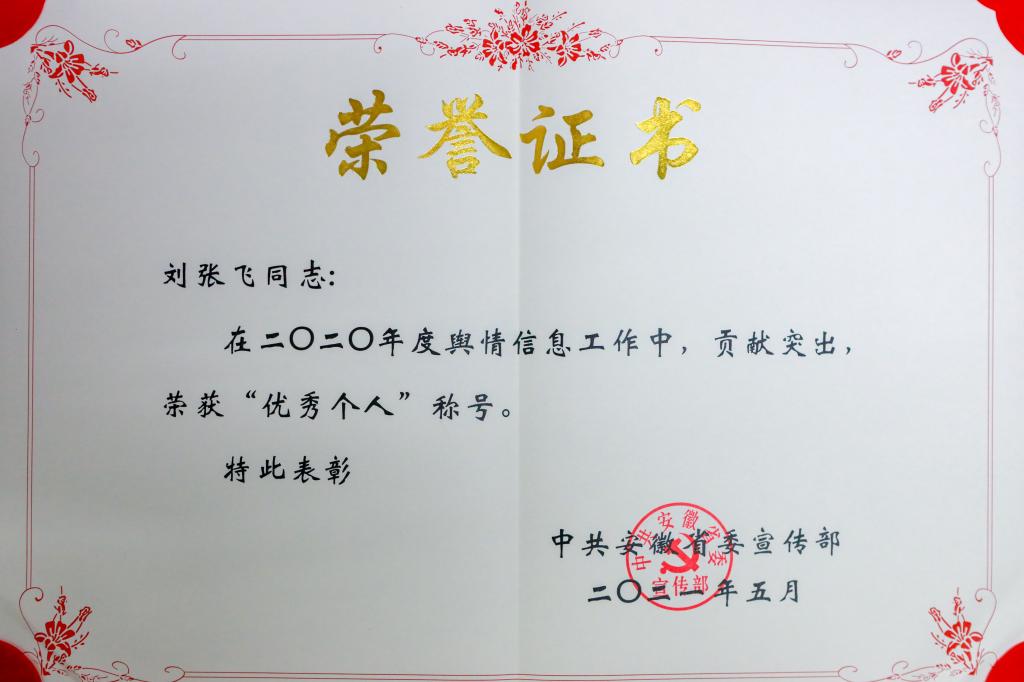 荣誉证书
刘张飞同志:
在二〇二〇年度舆情信息工作中，贡献突出，
荣获“优秀个人”称号。
特此表彰
中共安徽省委宣传部
二〇二一年五月
中共安徽省委
宣传部